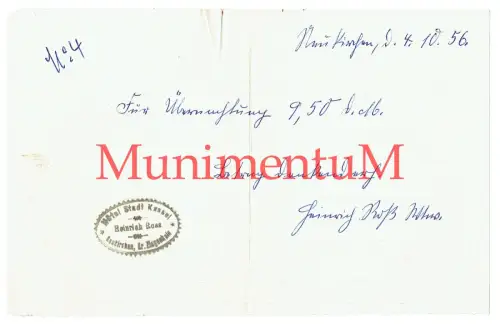 Neukirchen, d. 4. 10. 56.
No. 4
Für Übernachtung 9,50 D.M.
MunimentuM
Betrag dankend erh.
Heinrich Roß Wtw.
Hotel Stadt Kassel
Heinrich Ross
Neukirchen, Kr. Ziegenhain